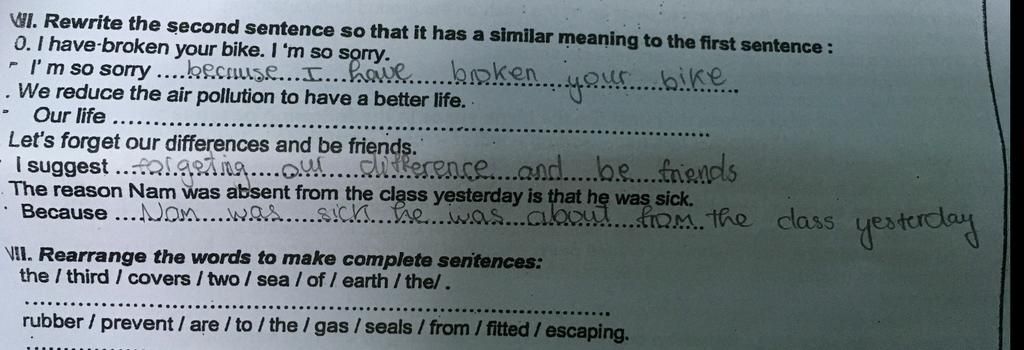 VII. Rewrite the second sentence so that it has a similar meaning to the first sentence :
0. I have broken your bike. I 'm so sorry.
- I' m so sorry ....because I have broken your bike
. We reduce the air pollution to have a better life.
- Our life ..........
Let's forget our differences and be friends.
- I suggest ...forgeting our difference and be friends
The reason Nam was absent from the class yesterday is that he was sick.
Because ...Nam was sick he was about from the class yesterday
VII. Rearrange the words to make complete sentences:
the / third / covers / two / sea / of / earth / the/ .
..........
rubber / prevent / are / to / the / gas / seals / from / fitted / escaping.